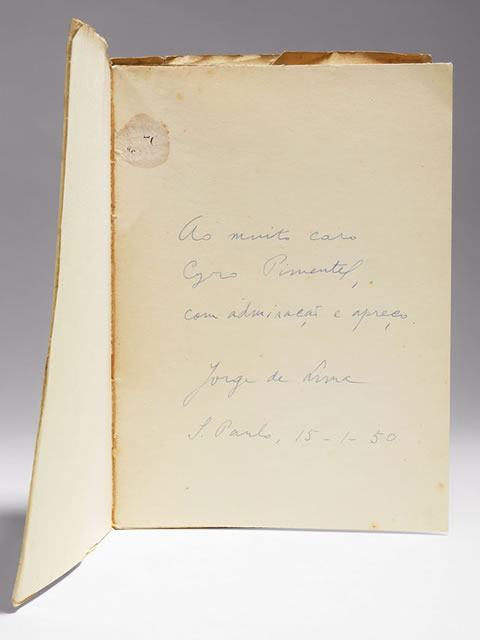 Ao muito caro
Cyro Pimentel,
com admiração e apreço.
Jorge de Lima
S. Paulo, 15-1-50